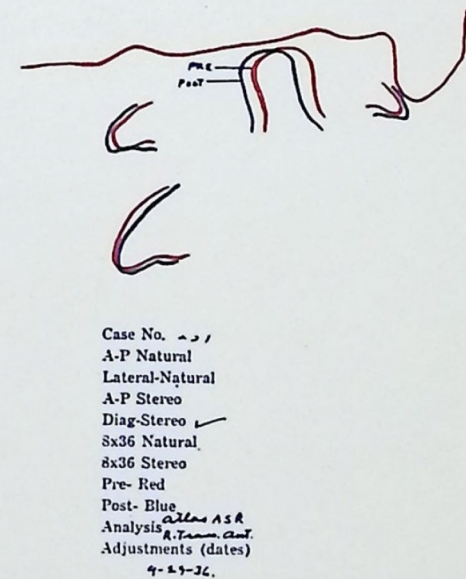 PRE
POST
Case No.
A-P Natural
Lateral-Natural
A-P Stereo
Diag-Stereo ✓
8x36 Natural
8x36 Stereo
Pre- Red
Post- Blue
Analysis atlas ASR
R. Trans. Ant.
Adjustments (dates)
4-29-36.